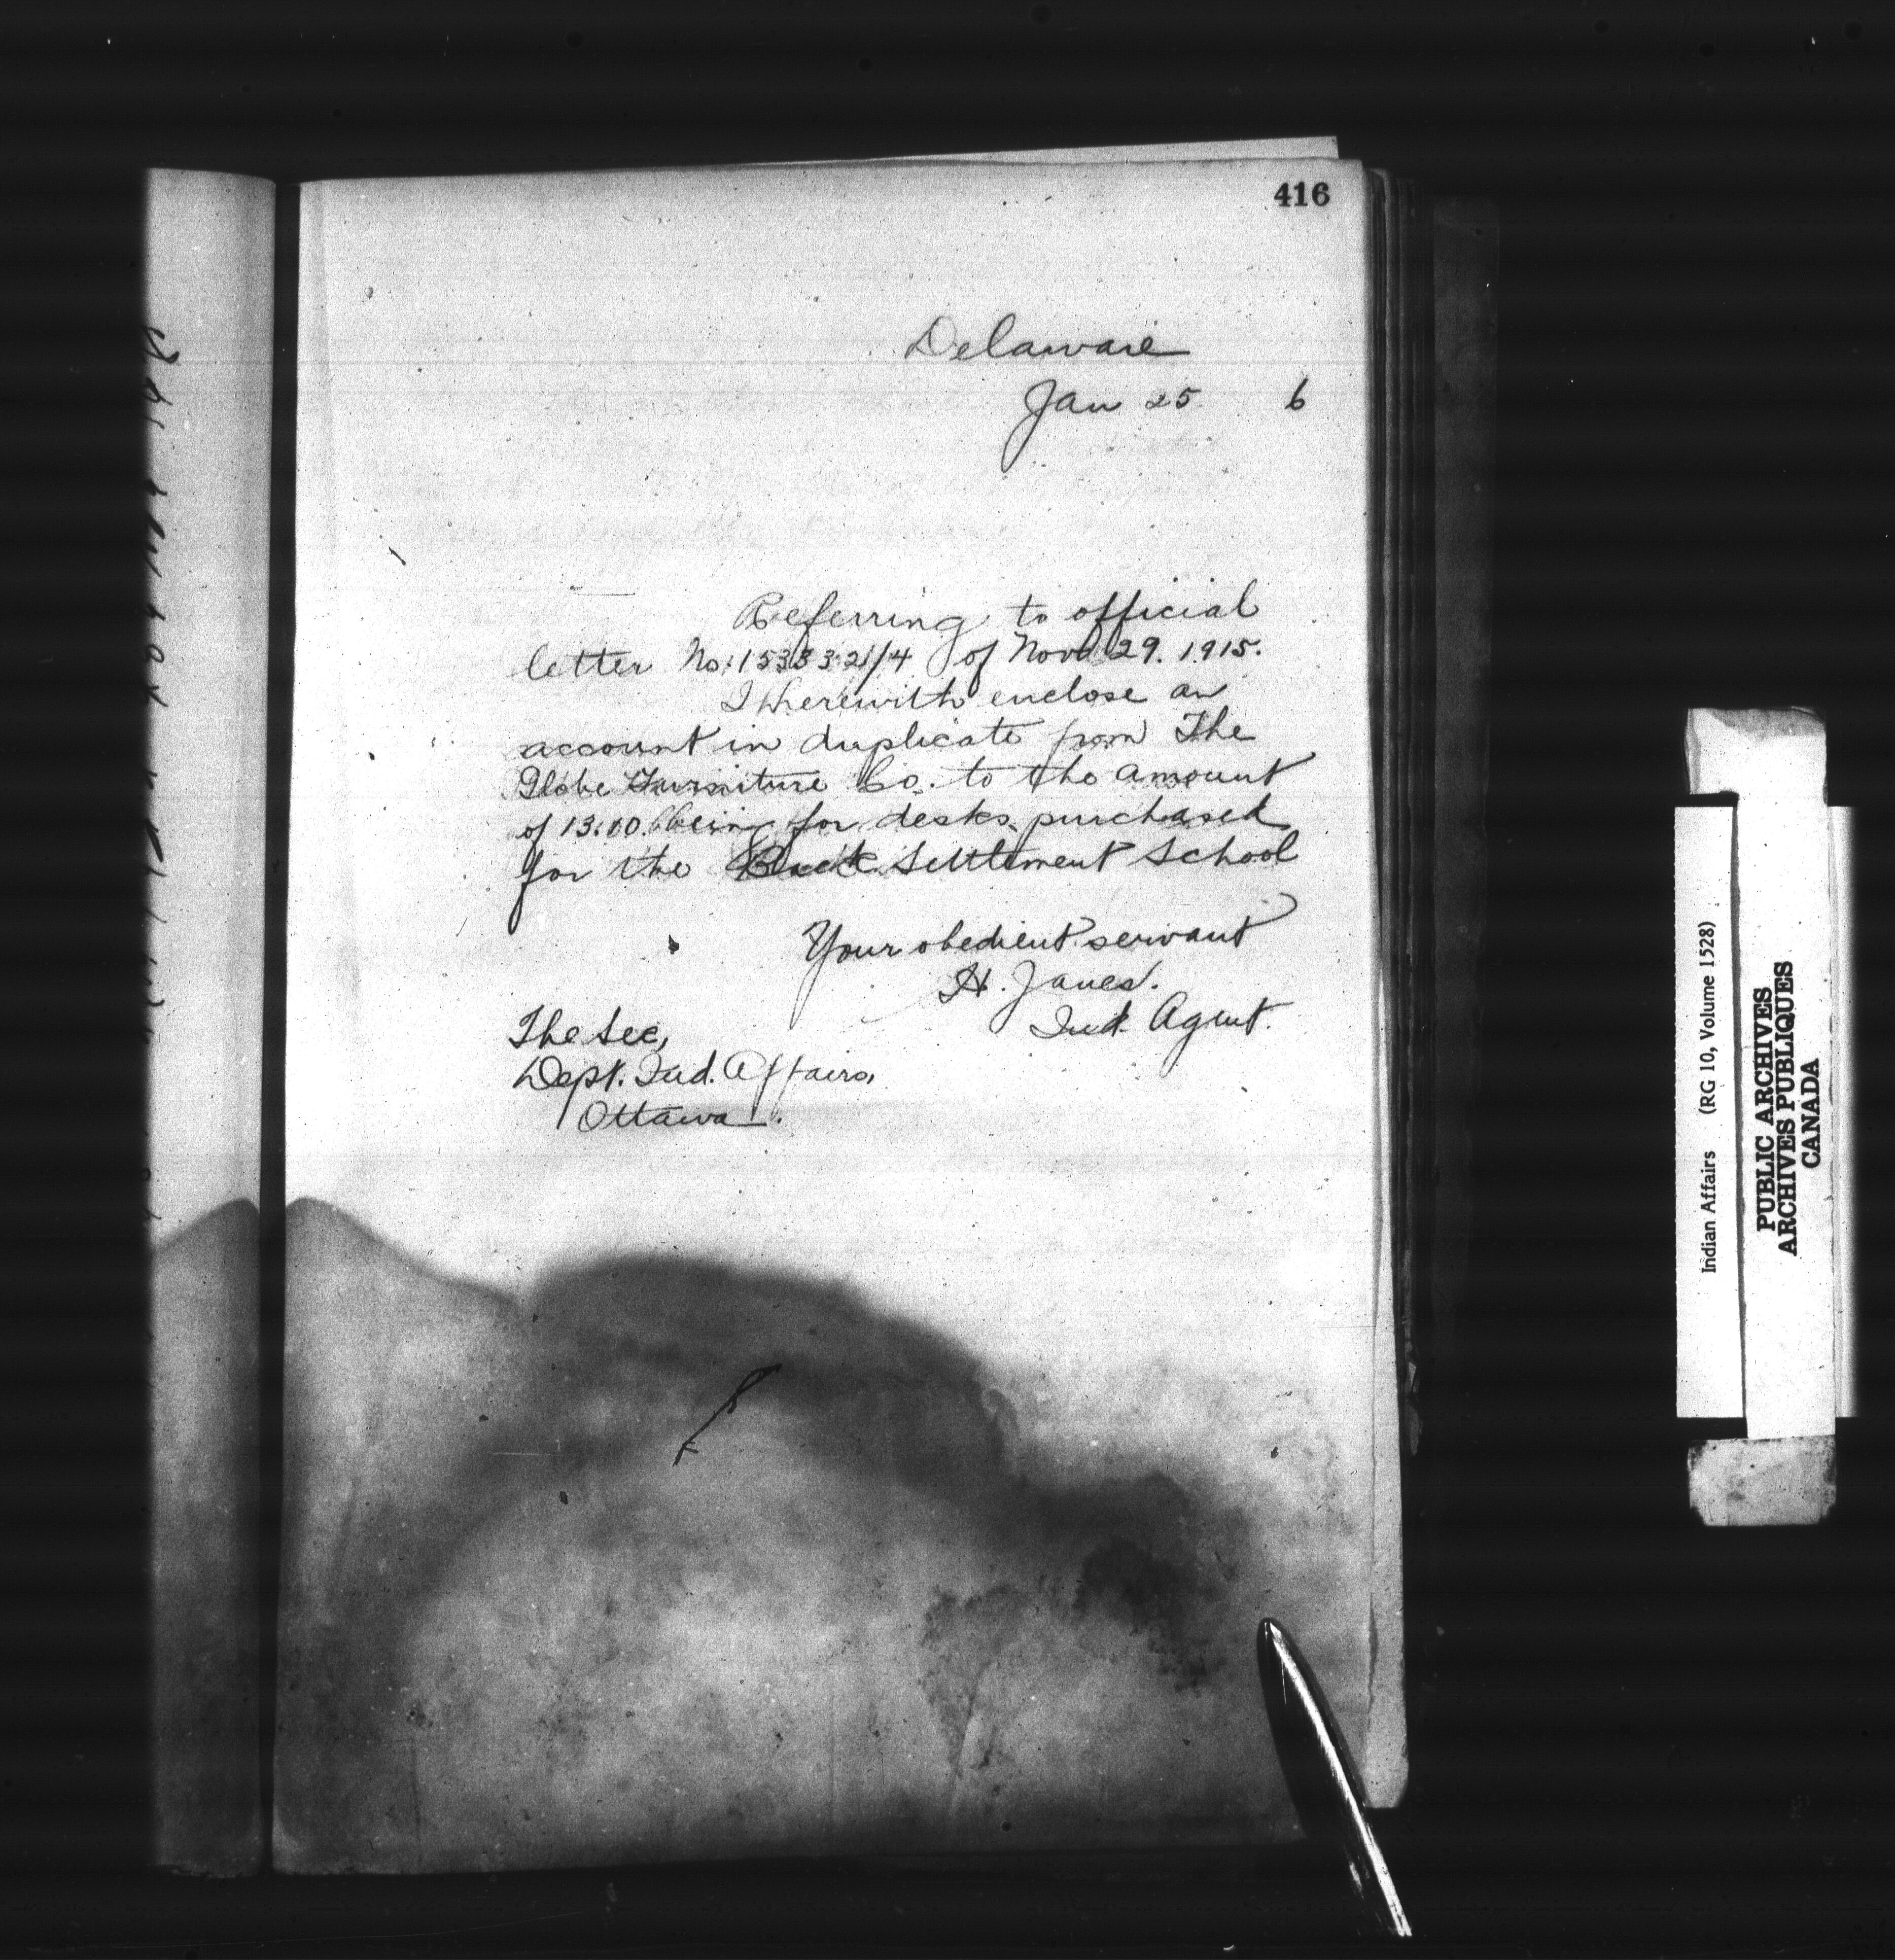 416
Delaware
Jan 25 6
Referring to official
letter No. 153332 1/4 of Nov 29. 1915.
I herewith enclose an
account in duplicate from The
Globe Furniture Co. to the amount
of 13.10. being for desks purchased
for the Back Settlement School
Your obedient servant
H. Janes.
Ind. Agent.
The Sec,
Dept. Ind. Affairs,
Ottawa.
Indian Affairs (RG 10, Volume 1528)
PUBLIC ARCHIVES
ARCHIVES PUBLIQUES
CANADA